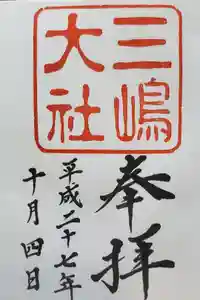 三嶋
大社
奉拝
平成二十七年
十月四日